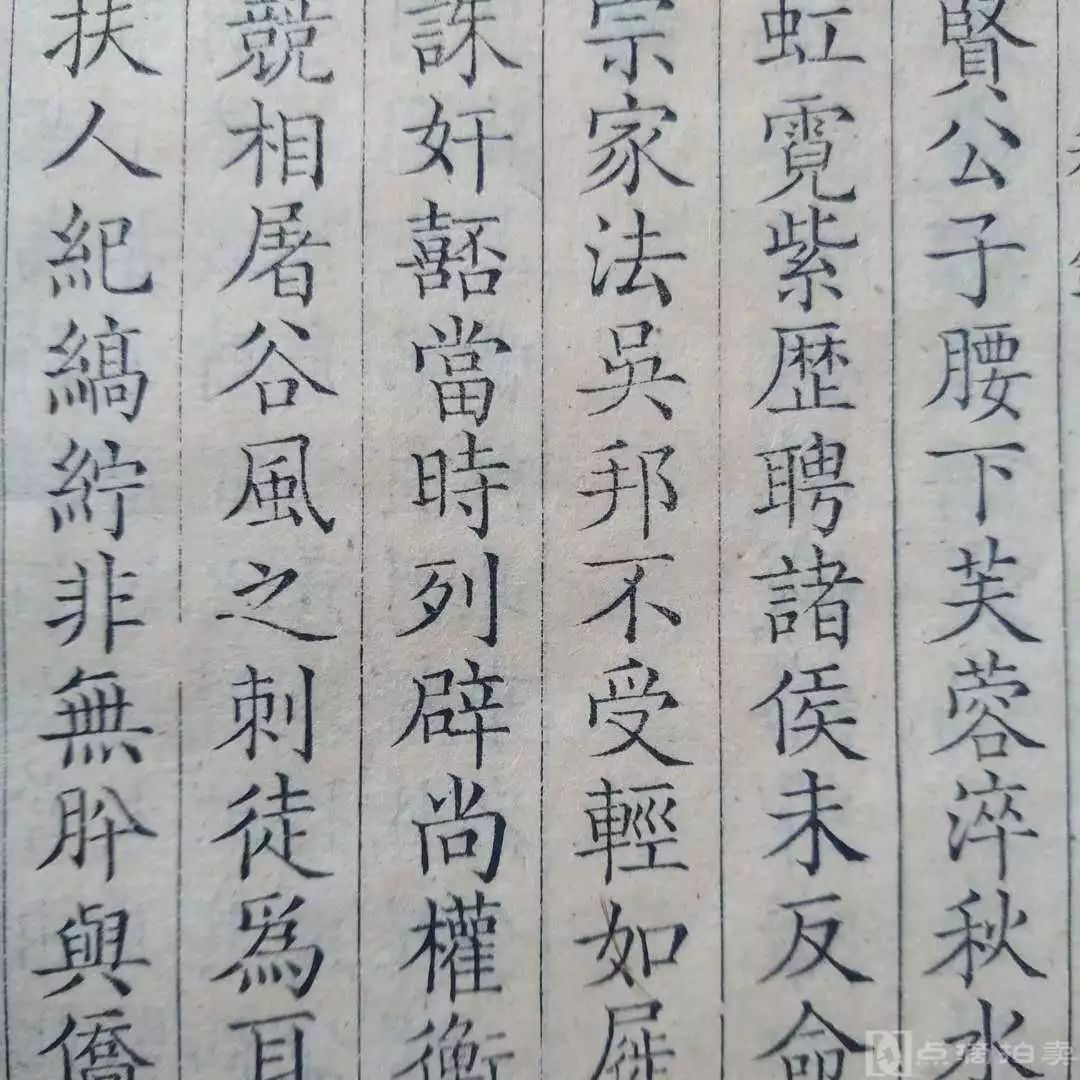 賢公子腰下芙蓉淬秋水
虹霓紫歴聘諸侯未反命
宗家法吳邦不受輕如屣
誅奸嚭當時列辟尚權衡
競相屠谷風之刺徒為耳
扶人紀縞紵非無肸與僑
点摘拍卖